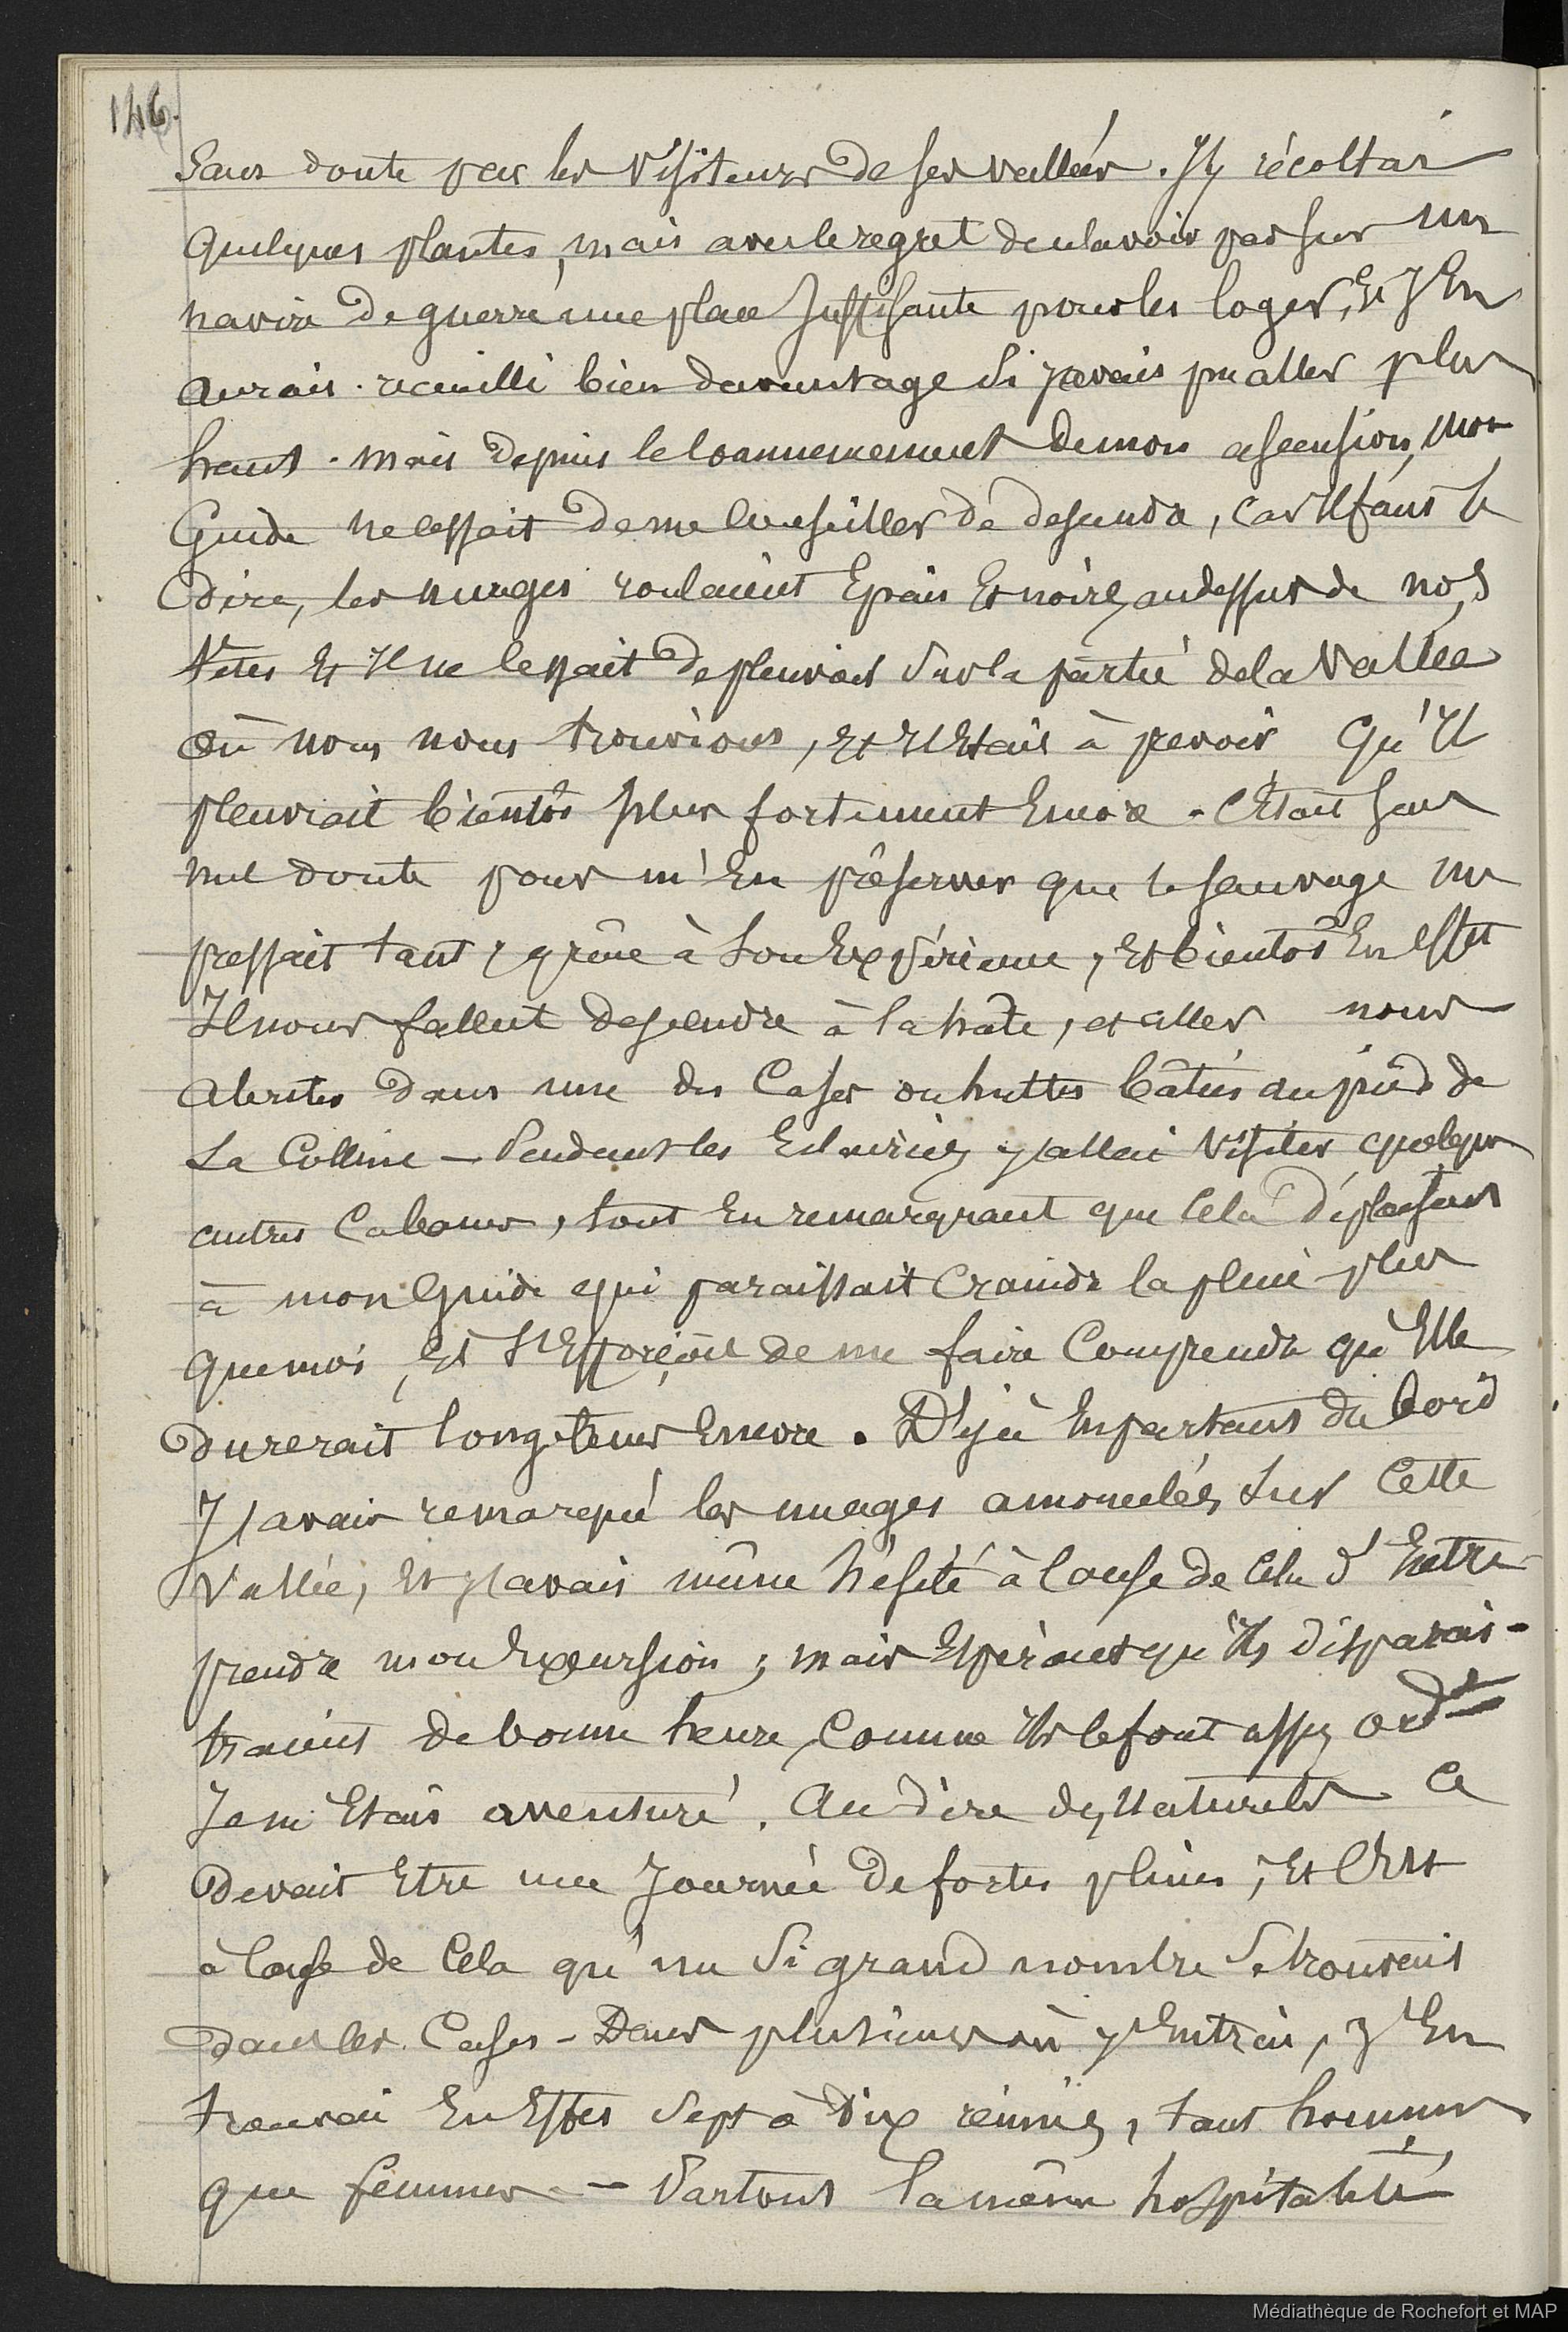 146.
Sans doute par les Visiteurs de ses vallées. J'y récoltai
quelques plantes, mais avec le regret de n'avoir pas sur un
navire de guerre une place suffisante pour les loger, Et J'En
aurais recueilli bien davantage si j'avais pu aller plus
haut. mais depuis le Commencement de mon ascension, mon
Guide ne cessait de me Conseiller de descendre, car Il faut le
dire, les nuages roulaient Epais Et noirs, au dessus de nos
têtes Et Il ne Cessait de pleuvoir sur la partie de la Vallée
où nous nous trouvions, Et Il Etait à prévoir Qu'Il
pleuvrait bientôt plus fortement Encore. C'Etait sans
nul doute pour m'En préserver que le sauvage me
pressait tant, grâce à son Expérience, Et bientôt En Effet
Il nous fallut descendre à la hâte, et aller nous
abriter dans une des Cases ou huttes bâties au pied de
La Colline — Pendant les Eclaircies j'allai Visiter quelques
autres Cabanes, tout En remarquant que Cela déplaisait
à mon Guide qui paraissait Craindre la pluie plus
que moi, Et s'Efforçait de me faire Comprendre qu'Elle
durerait longtems Encore. Déjà En partant du bord
J'avais remarqué les nuages amoncelés sur Cette
Vallée, Et j'avais même hésité à Cause de Cela d'Entre
prendre mon Excursion ; mais Espérant qu'Ils disparai-
traient de bonne heure, Comme Ils le font assez ordt
Je m'Etais aventuré. Au dire des Naturels Ce
devait Etre une Journée de fortes pluies, Et C'Est
à Cause de Cela qu'un si grand nombre se trouvait
dans les Cases - Dans plusieurs où j'Entrai, J'En
trouvai En Effet Sept à Dix réunis, tant hommes
que femmes — Partout la même hospitalité
Médiathèque de Rochefort et MAP